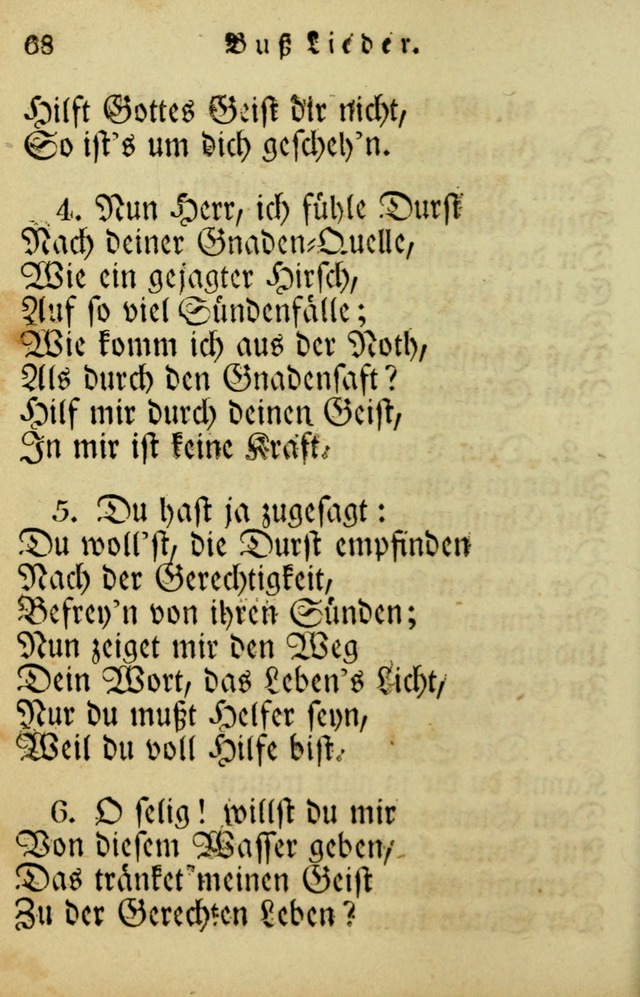 68 Buß Lieder.
Hilft Gottes Geist dir nicht,
So ist's um dich gescheh'n.
4. Nun Herr, ich fühle Durst
Nach deiner Gnaden-Quelle,
Wie ein gejagter Hirsch,
Auf so viel Sündenfälle;
Wie komm ich aus der Noth,
Als durch den Gnadensaft?
Hilf mir durch deinen Geist,
In mir ist keine Kraft.
5. Du hast ja zugesagt:
Du woll'st, die Durst empfinden
Nach der Gerechtigkeit,
Befrey'n von ihren Sünden;
Nun zeiget mir den Weg
Dein Wort, das Leben's Licht,
Nur du mußt Helfer seyn,
Weil du voll Hilfe bist.
6. O selig! willst du mir
Von diesem Wasser geben,
Das tränket meinen Geist
Zu der Gerechten Leben?